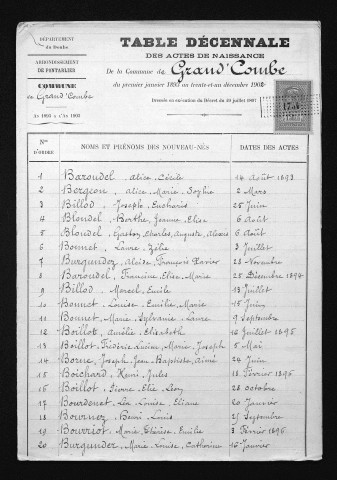 DÉPARTEMENT
du Doubs
ARRONDISSEMENT
DE PONTARLIER
COMMUNE
de Grand'Combe
An 1893 à l'An 1902
TABLE DÉCENNALE
DES ACTES DE NAISSANCE
De la Commune de Grand'Combe
du premier janvier 1893 au trente-et-un décembre 1902
Dressée en exécution du Décret du 20 juillet 1807
Nos D'ORDRE NOMS ET PRÉNOMS DES NOUVEAU-NÉS DATES DES ACTES
1 Baroudel, Alice, Cécile 14 Août 1893
2 Bergeon, Alice, Marie, Sophie 2 Mars
3 Billod, Joseph, Eucharis 25 Juin
4 Blondel, Berthe, Jeanne, Elise 6 Août
5 Blondel, Gaston, Charles, Auguste, Alexis 6 Août
6 Bonnet, Laure, Zélie 3 Juillet
7 Burgunder, Aloïse, François Xavier 28 Novembre
8 Baroudel, Francine, Elise, Marie 25 Décembre 1894
9 Billod, Marcel, Emile 13 Juillet
10 Bonnet, Louise, Emilie, Marie 15 Juin
11 Bonnet, Marie, Sylvanie, Laure 9 Septembre
12 Boillot, Amélie, Elisabeth 16 Juillet 1895
13 Boillot, Frédéric, Lucien, Marie, Joseph 5 Mai
14 Borne, Joseph, Jean-Baptiste, Aimé 24 Juin
15 Boichard, Henri, Jules 18 Février 1896
16 Boillot, Pierre, Elie, Léon 28 Octobre
17 Bourdenet, Léa, Louise, Eliane 20 Janvier
18 Bournez, Henri, Louis 25 Septembre
19 Bourriot, Marie, Thérèse, Emilie 3 Février 1896
20 Burgunder, Marie, Louise, Catherine 16 Janvier